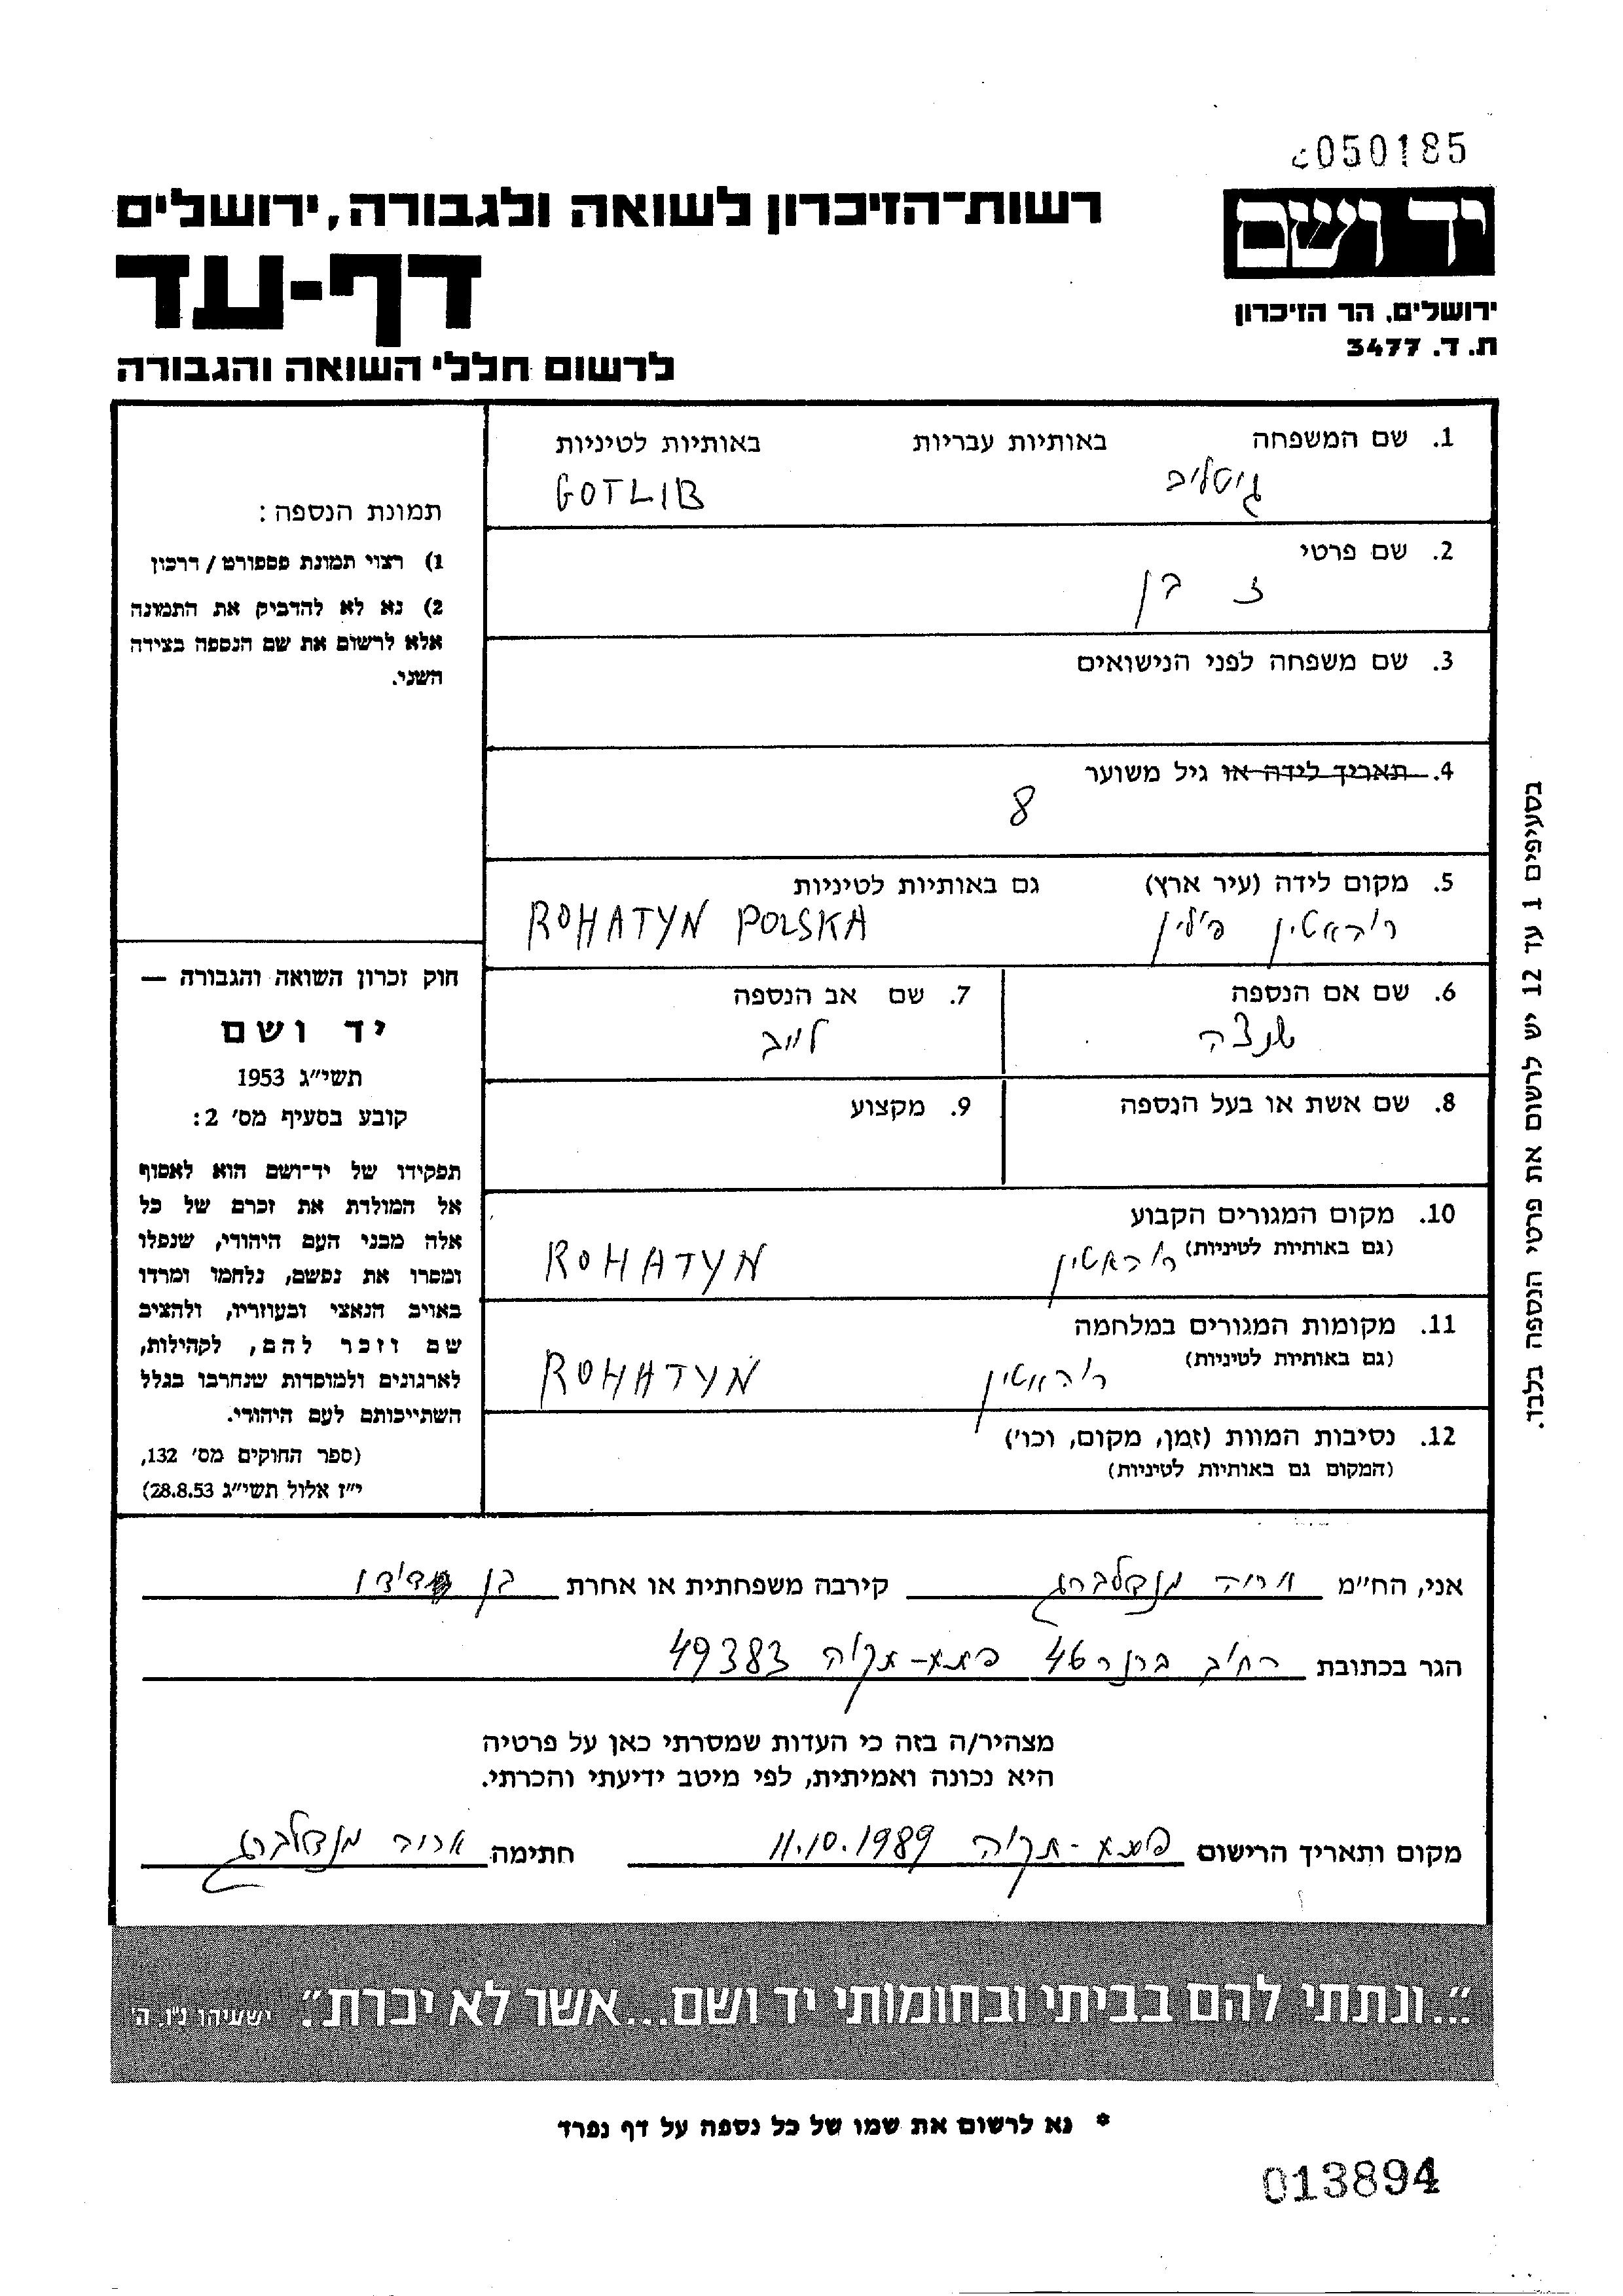 050185
יד ושם
ירושלים, הר הזיכרון
ת. ד. 3477
רשות־הזיכרון לשואה ולגבורה, ירושלים
דף-עד
לרשום חללי השואה והגבורה
1. שם המשפחה באותיות עבריות באותיות לטיניות
גוטליב GOTLIB
2. שם פרטי
ז בן
3. שם משפחה לפני הנישואים
4. תאריך לידה או גיל משוער
8
5. מקום לידה (עיר ארץ) גם באותיות לטיניות
רוהאטין פולין ROHATYN POLSKA
6. שם אם הנספה 7. שם אב הנספה
שנצה לייב
8. שם אשת או בעל הנספה 9. מקצוע
10. מקום המגורים הקבוע
(גם באותיות לטיניות) רוהאטין ROHATYN
11. מקומות המגורים במלחמה
(גם באותיות לטיניות) רוהאטין ROHATYN
12. נסיבות המוות (זמן, מקום, וכו')
(המקום גם באותיות לטיניות)
תמונת הנספה:
1) רצוי תמונת פספורט / דרכון
2) נא לא להדביק את התמונה
אלא לרשום את שם הנספה בצידה
השני.
חוק זכרון השואה והגבורה —
יד ושם
תשי״ג 1953
קובע בסעיף מס׳ 2:
תפקידו של יד־ושם הוא לאסוף
אל המולדת את זכרם של כל
אלה מבני העם היהודי, שנפלו
ומסרו את נפשם, נלחמו ומרדו
באויב הנאצי ובעוזריו, ולהציב
שם וזכר להם, לקהילות,
לארגונים ולמוסדות שנחרבו בגלל
השתייכותם לעם היהודי.
(ספר החוקים מס׳ 132,
י״ז אלול תשי״ג 28.8.53)
בסעיפים 1 עד 12 יש לרשום את פרטי הנספה בלבד.
אני, הח״מ אריה מנדלברג קירבה משפחתית או אחרת בן דודו
הגר בכתובת רחוב ברנר 46 פתח-תקוה 49383
מצהיר/ה בזה כי העדות שמסרתי כאן על פרטיה
היא נכונה ואמיתית, לפי מיטב ידיעתי והכרתי.
מקום ותאריך הרישום פתח-תקוה 11.10.1989 חתימה אריה מנדלברג
״...ונתתי להם בביתי ובחומותי יד ושם...אשר לא יכרת״. ישעיהו נ״ו, ה׳
* נא לרשום את שמו של כל נספה על דף נפרד
013894